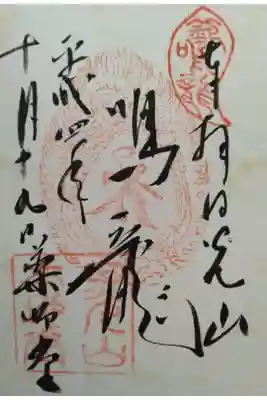 奉拝日光山
鳴龍
平成四年
十月十九日薬師堂